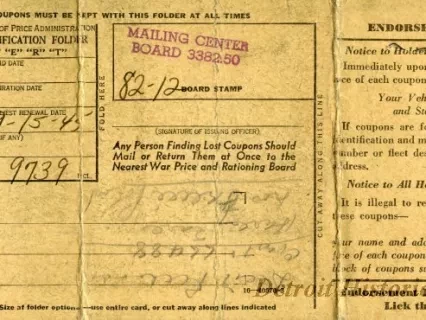 OUPONS MUST BE KEPT WITH THIS FOLDER AT ALL TIMES
OF PRICE ADMINISTRATION
IFICATION FOLDER
"E" "R" "T"
D DATE
IRATION DATE
EST RENEWAL DATE
-15-45
F ANY)
9739
INCL.
FOLD HERE
MAILING CENTER
BOARD 3382.50
82-12
BOARD STAMP
(SIGNATURE OF ISSUING OFFICER)
Any Person Finding Lost Coupons Should
Mail or Return Them at Once to the
Nearest War Price and Rationing Board
16-
Size of folder optional—use entire card, or cut away along lines indicated
CUT AWAY ALONG THIS LINE
ENDORSE
Notice to Holde
Immediately upon
ace of each coupon
Your Veh
and Sta
If coupons are fo
entification and m
umber or fleet des
ddress.
Notice to All Ho
It is illegal to re
hese coupons—
our name and add
face of each coupon
lock of coupons su
Endorsement
Lick th
Detroit Historic